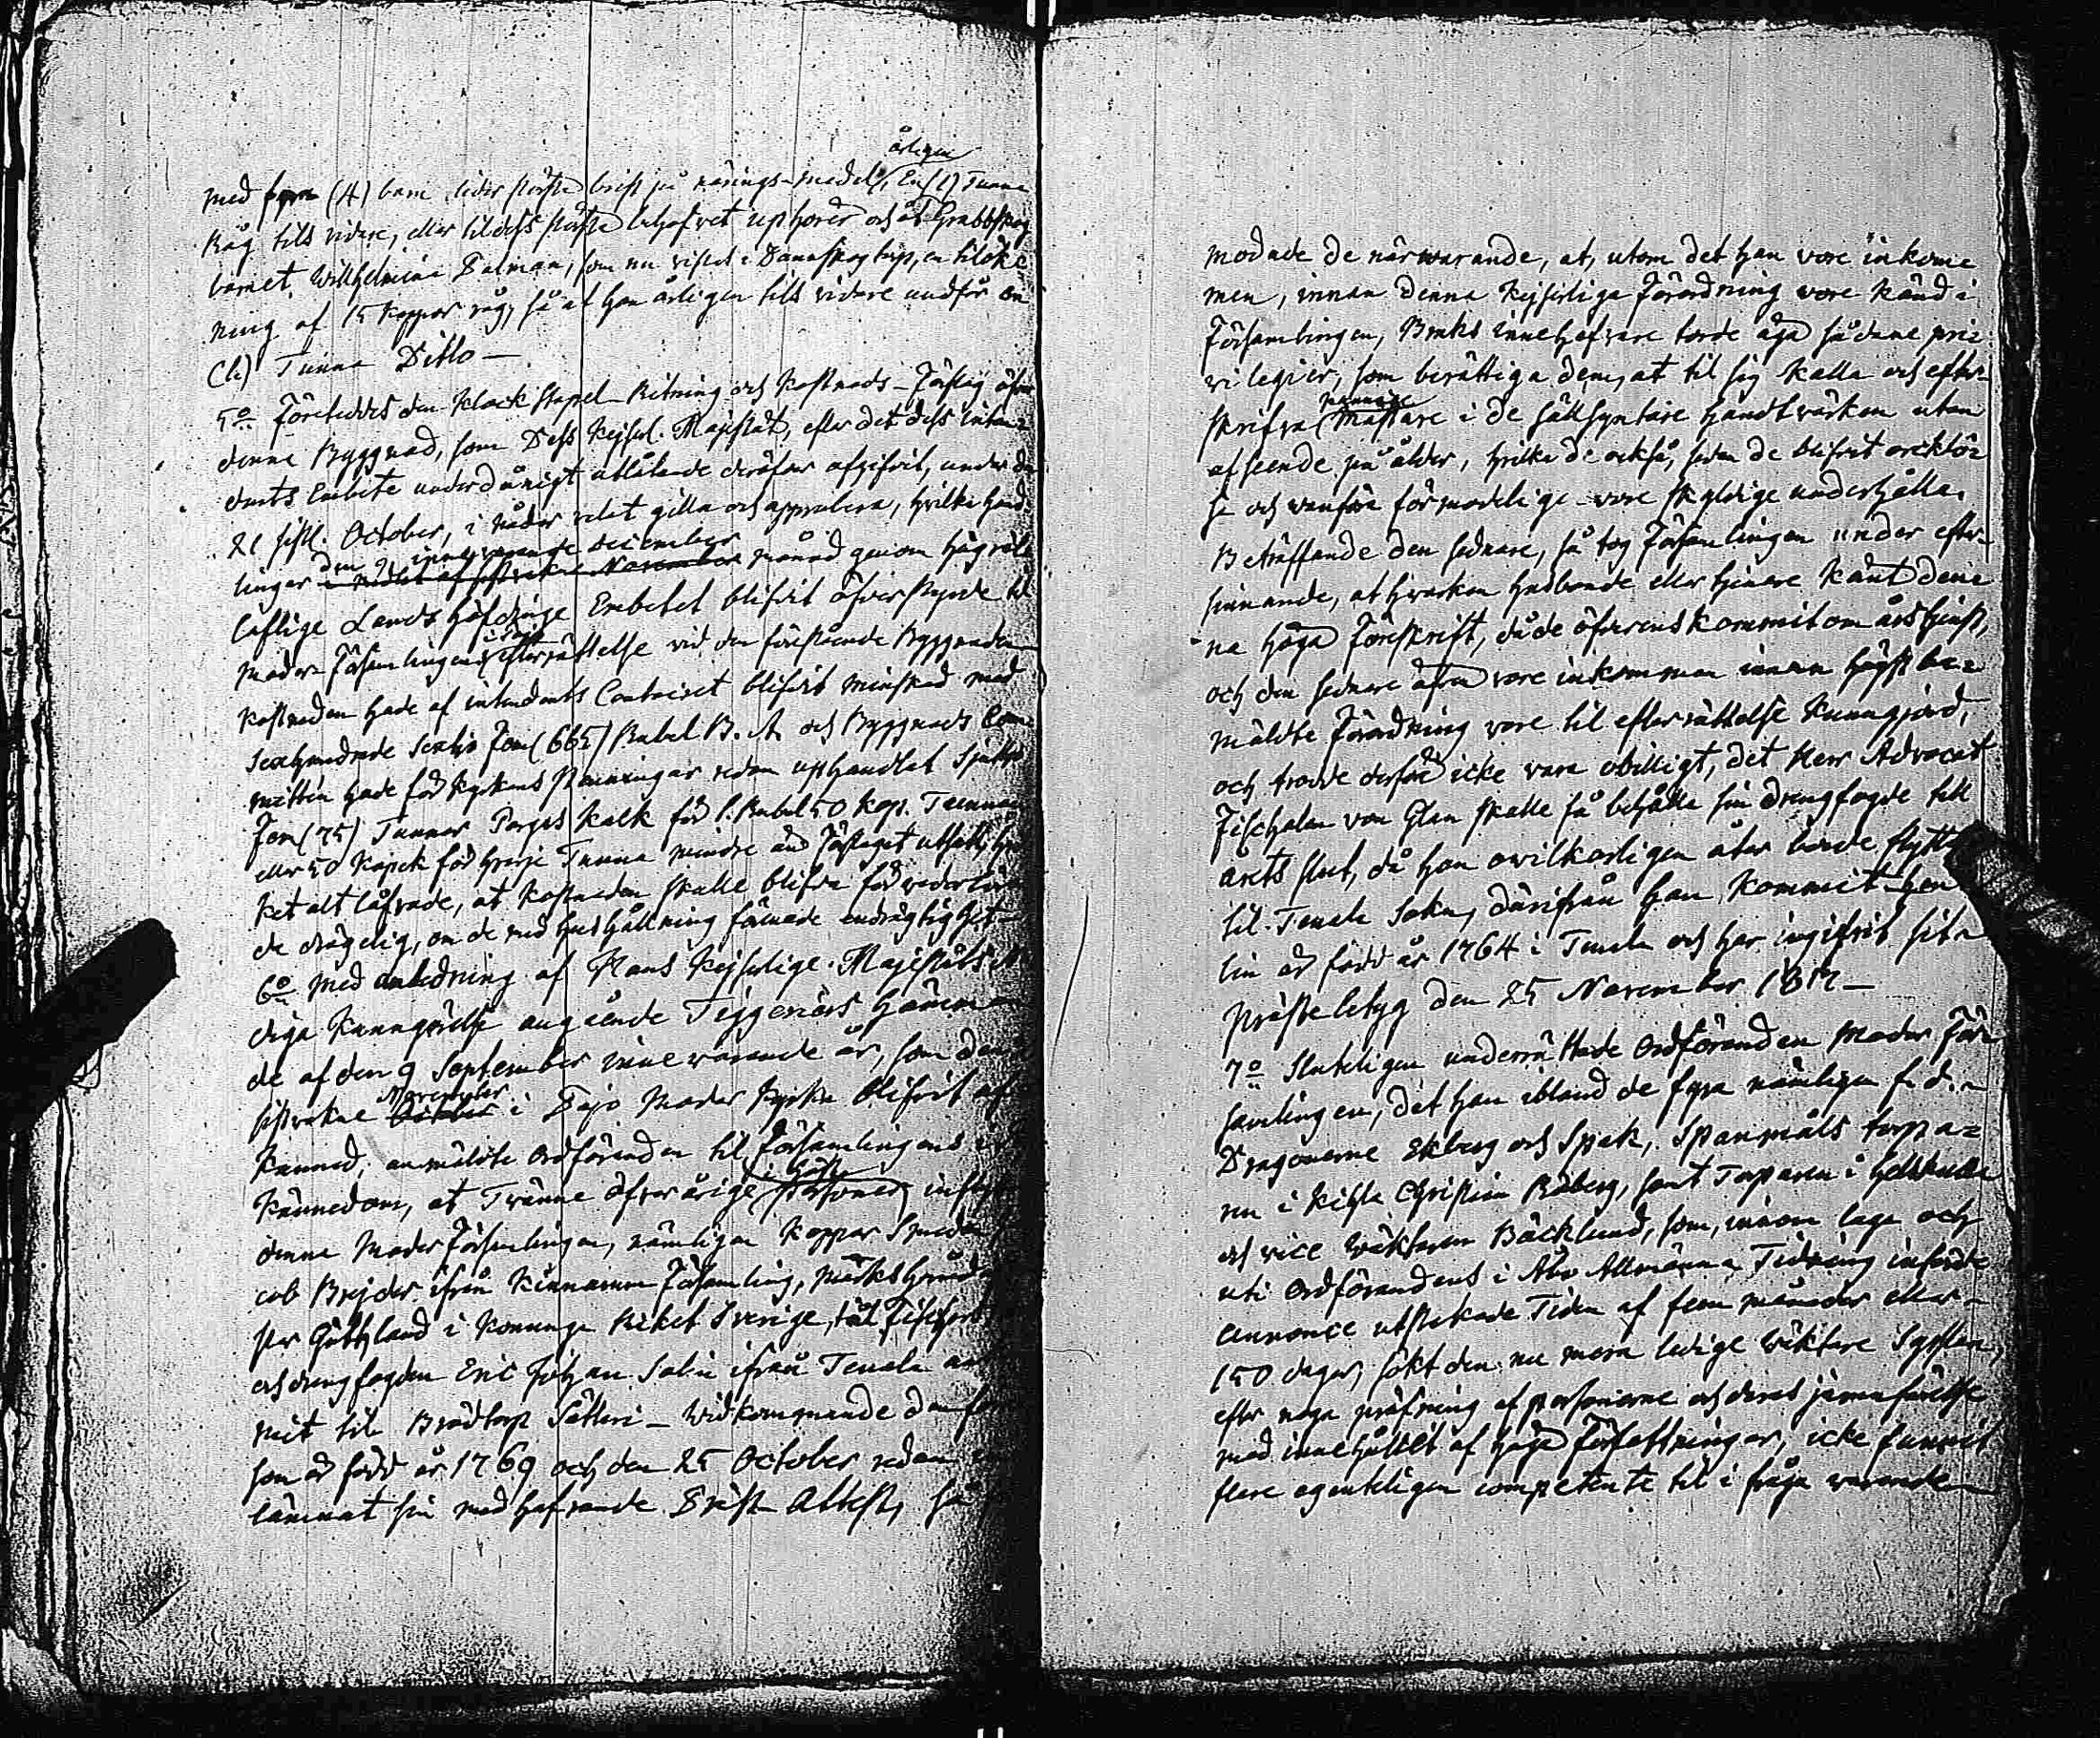 årligen
med fyra (4) barn lider största brist på närings-medel, En (1) Tunna
Råg tills vidare, eller tildess största behofvet uphörer och åt Grabbskog
barnet Willhelmina Dalman, som nu vistas i Dannskog torp, en tilökt
ning af 15 kappar råg, så at hon årligen tills vidare undfår en
(1) Tunna Ditto —
5o Företeddes den Klockstapel-Ritning och Kostnads-Förslag öfver
denna Byggnad, som Dess Kejserl. Majestät, efter det dess inten-
dents Embete underdånigt utlåtande deröfver afgifvit, under den
21 sistl. October, i nåder velat gilla och approbera, hvilka hand-
den 9 innevarande December
lingar i medlet af sistvekne November månad genom högväl-
loflige Lands Höfdinge Embetet blifvit öfverstyrde til
Moder Församlingens efterrättelse vid den förestående Byggnaden
kostnaden hade af intendents Contoiret blifvit minskad med
Sexhundrade Sextio Fem (665) Rubel B. A. och Byggnads Com-
mittén hade för kyrkans panningar redan uphandlat Sjuttio
Fem (75) Tunnor Pargas Kalk för 1. Rubel 50 kop. Tunnan
eller 50 Kopek för hvarje Tunna mindre än Förslaget utsatt, hvil-
ket alt låfvade, at kostnaden skulle blifva för vederböran-
de drägelig, om de med hushållning förenade endrägtighet —
6o Med anledning af Hans Kejserlige Majestäts Nå-
diga Kungörelse angående Tiggeriers hämman-
de af den 9 September innevarande år, som den
November
sistvekne October i Bojo Moder Kyrka blifvit af-
kunnad, anmälte Ordföranden til Församlingens
kännedom, at Tvänne öfverårige personer i höst
denna Moder Församlingen, nämligen Koppar Smeden
cob Brejder ifrån Kinnarumma Församling, Marks härad
ster Göthland i Konunga Riket Sverige, til Fiskars
och drengfogden Eric Johan Salin ifrån Tenala
mit til Brödtorp Säteri — Widkommande den
som är född år 1769 och den 25 October redan
lämnat sin medhafvande Präst Attest, så
modade de närwarande, at, utom det han vore inkom-
men, innan denna Kejserliga Förordning vore känd i
Församlingen, Bruks innehafvare torde äga sådane pri-
vilegier, som berättiga dem, at til sig kalla och efter-
skrifva mästare i de sällsyntare handtwärken utan
afseende på ålder, hvilka de också, sedan de blifvit orcklö-
sa och vanföra förmodeligen vore skyldige underhålla.
Beträffande den sednare, så tog Församlingen under efter-
sinnande, at hvarken husbonde eller tjenare känt den-
na höga Föreskrift, då de öfverens kommit om årstjenst,
och den sednare äfven vore inkommen innan högst be-
mälte Förordning vore til efterrättelse kungjord,
och trodde derföre icke vara obilligt, det Herr Advocat
Fischalen von Glan skulle få behålla sin drengfogde till
årets slut, då han ovilkorligen åter borde flytta
til Tenala Sokn, därifrån han kommit —
lin är född år 1764 i Tenala och har ingifvit sit
prästebetyg den 25 November 1817 —
7o Sluteligen underrättade Ordföranden Moder För-
samlingen, det han ibland de fyra nämligen f. d.
Dragonerne Ekberg och Spak, Spanmåls torpa-
ren i Kihla Christian Råberg, samt Torparen i
och vice Wäktaren Bäcklund, som, innom laga och
uti Ordförandens i Åbo Allmänna Tidning införde
annonce utstakade Tiden af fem månader eller
150 dagar, sökt den nu mera ledige Wäktare Sysslan,
efter noga pröfning af personerne och deras jämnförelse
med innehållet af höga Författningar, icke funnit
flere egenteligen competente til i fråga varande